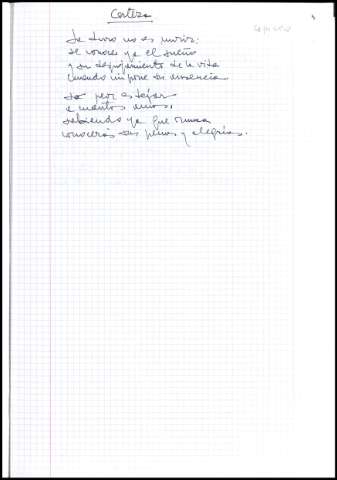 Certeza
Lo duro no es morir:
se conoce ya el sueño
y su despojamiento de la vida
cuando impone su ausencia
Lo peor es dejar
a cuantos amas,
sabiendo ya que nunca
conocerás sus penas y alegrías.